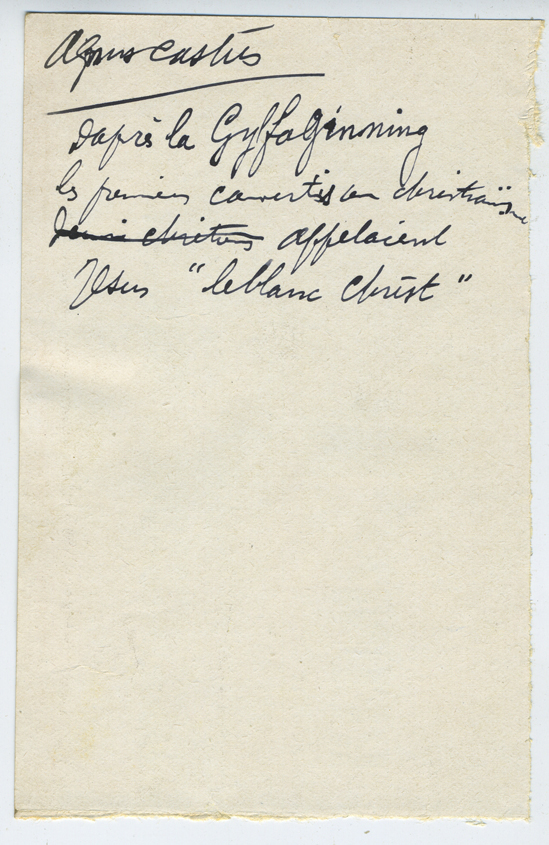 Agnus castus
D'après la GylfaGinning
les premiers convertis au christianisme
chrétiens appelaient
Jésus "le blanc Christ"